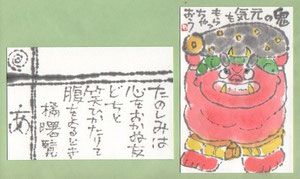 たのしみは
心をおかぬ友
どちと
笑ひかたりて
腹をよるとき
橘曙覧
あ
鬼の元気を
もらっ
ちゃ
おう